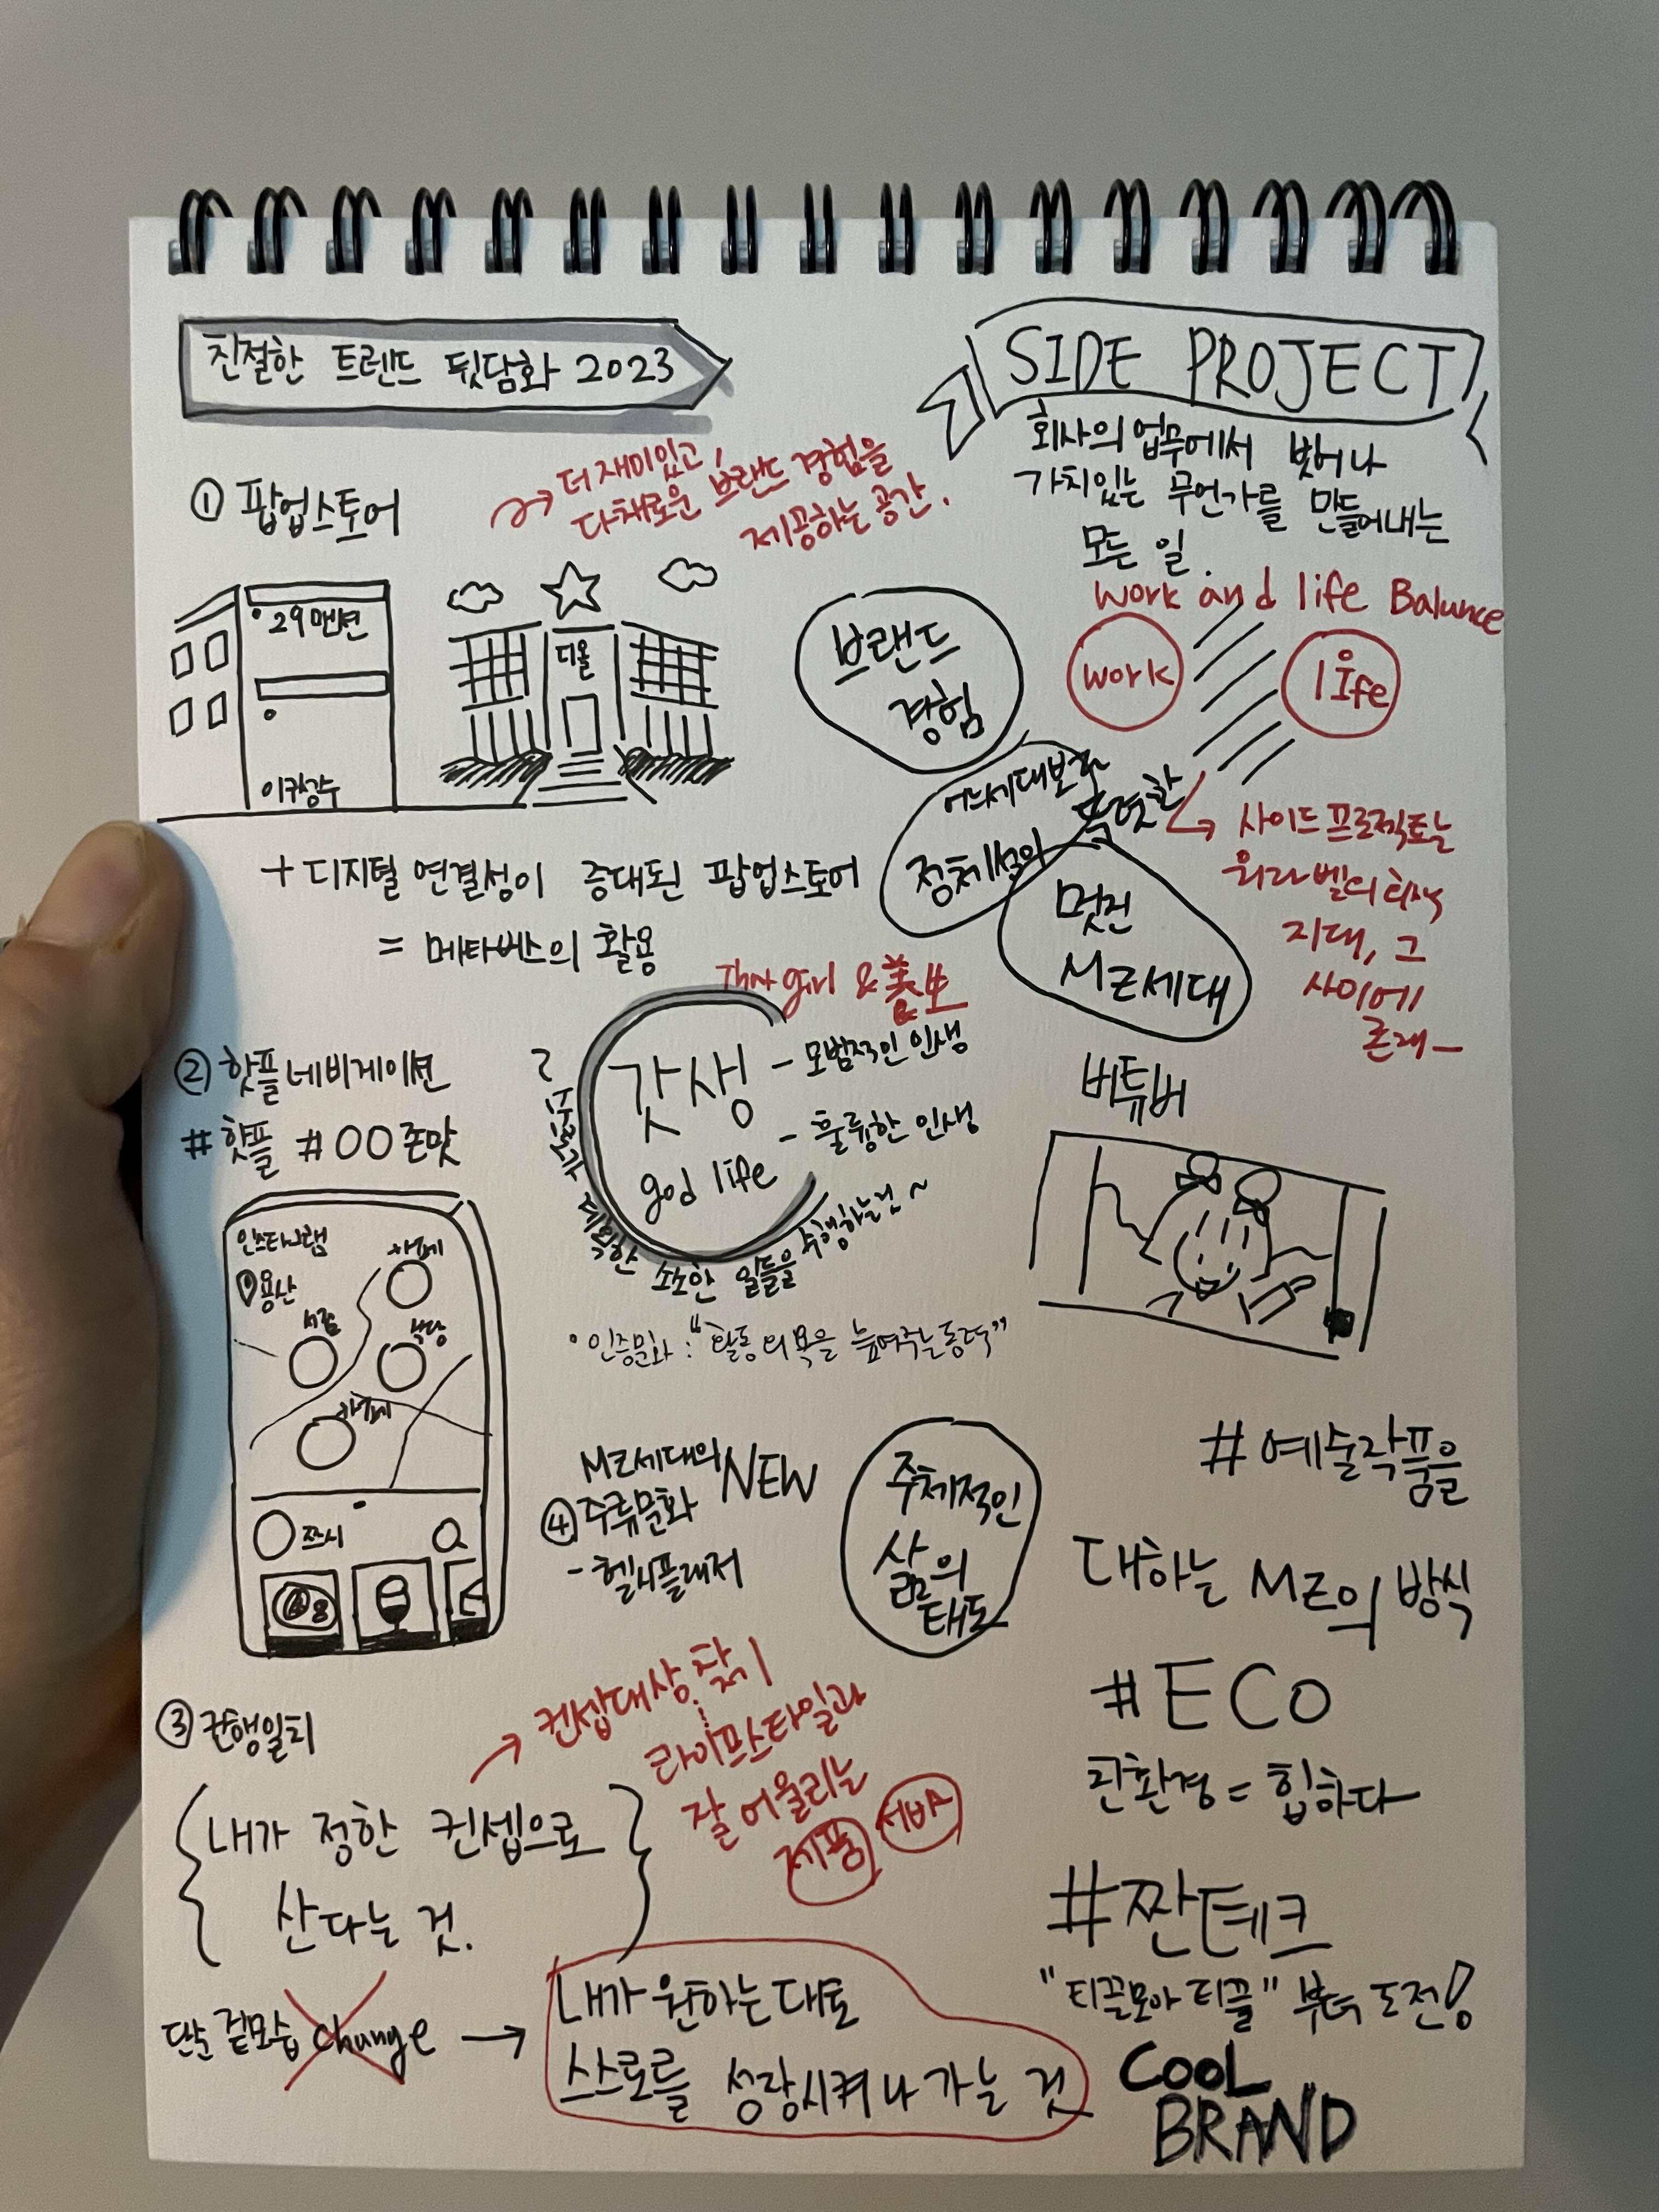 친절한 트렌드 뒷담화 2023
① 팝업스토어
더 재미있고,
다채로운 브랜드 경험을
제공하는 공간.
29맨션
이구성수
디올
+ 디지털 연결성이 증대된 팝업스토어
= 메타버스의 활용
② 핫플 네비게이션
#핫플 #OO존맛
인스타그램
용산
카페
서점
식당
카페
③ 컨행일치
내가 정한 컨셉으로
산다는 것.
단순 겉모습 change
→ 내가 원하는대로
스스로를 성장시켜 나가는 것
→ 컨셉대상 찾기
라이프스타일과
잘 어울리는
제품
서비스
That girl &
갓생
god life
- 모범적인 인생
- 훌륭한 인생
계획한 소소한 일들을 수행하는 것~
• 인증문화 : "활동의욕을 높여주는 동력"
MZ세대의 NEW
④ 주류문화
- 헬시플레저
주체적인
삶의
태도
SIDE PROJECT
회사의 업무에서 벗어나
가치있는 무언가를 만들어내는
모든 일.
work and life Balance
work
life
사이드 프로젝트는
워라벨의 회색
지대, 그
사이에
존재—
브랜드
경험
어느세대보다
독특한
정체성의
멋진
MZ세대
버튜버
#예술작품을
대하는 MZ의 방식
#ECO
친환경 = 힙하다
#짠테크
"티끌모아 티끌" 부터 도전!
COOL
BRAND